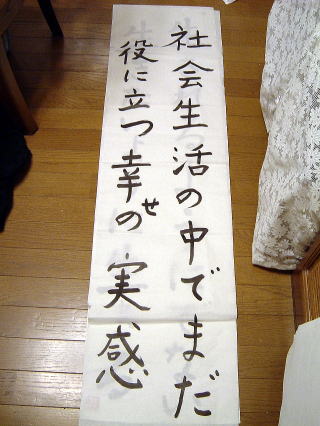 社会生活の中でまだ
役に立つ幸せの実感